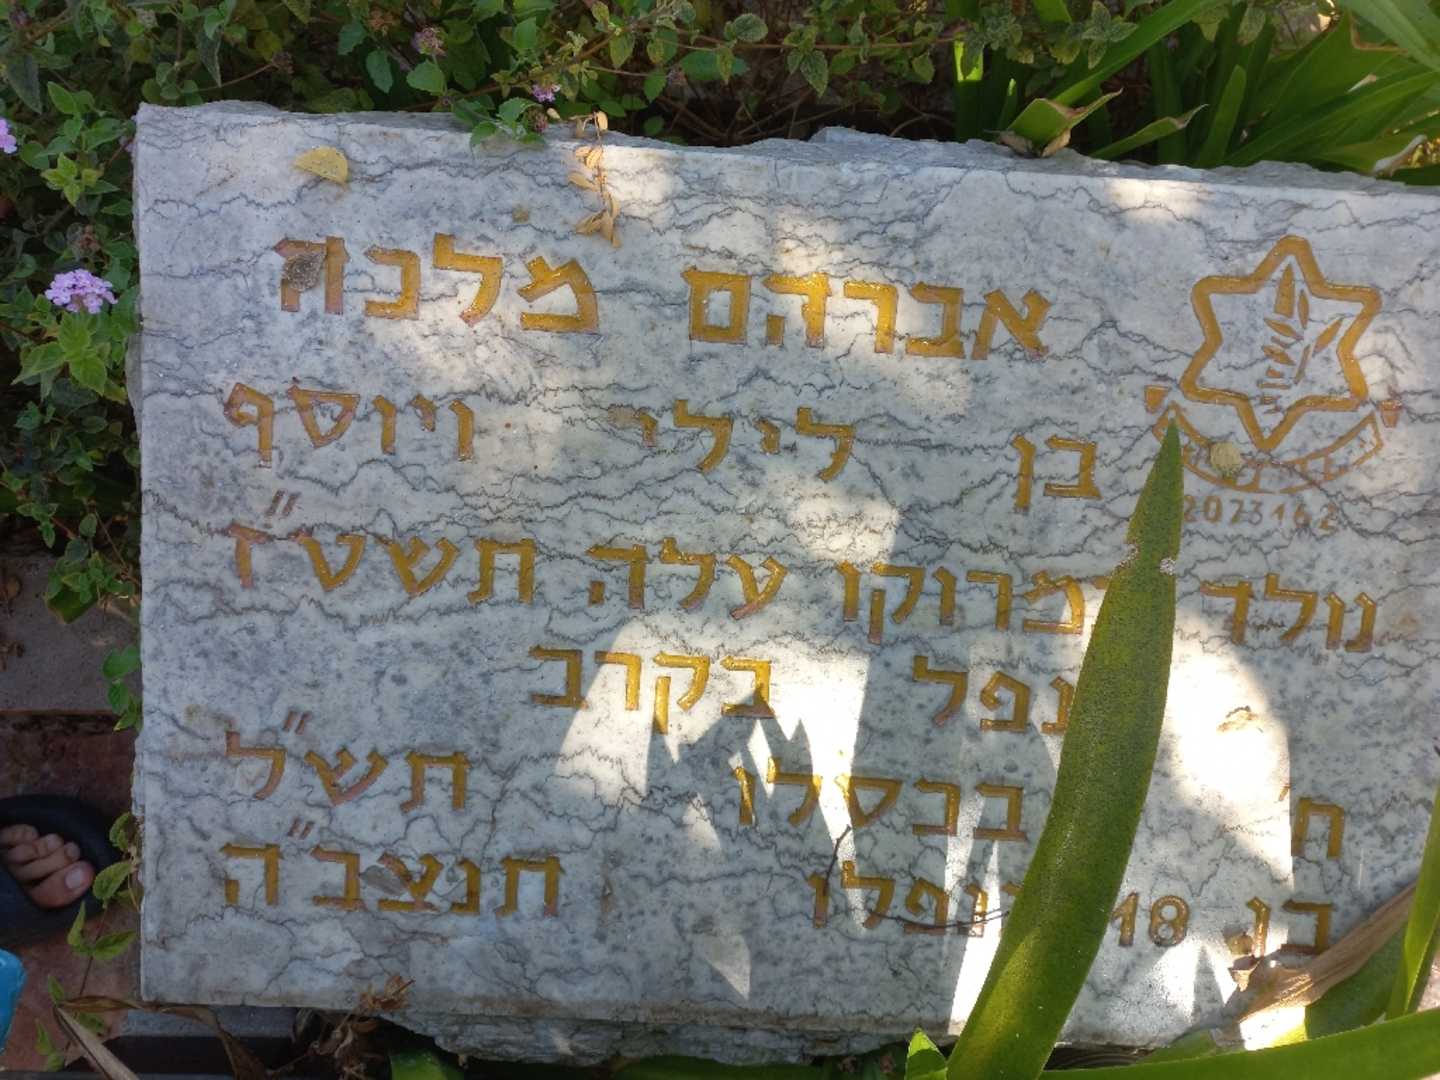 אברהם מלכה
בן לילי ויוסף
2073162
נולד במרוקו עלה תשט"ז
נפל בקרב
ח' בכסלו תש"ל
בן 18 בנפלו תנצב"ה